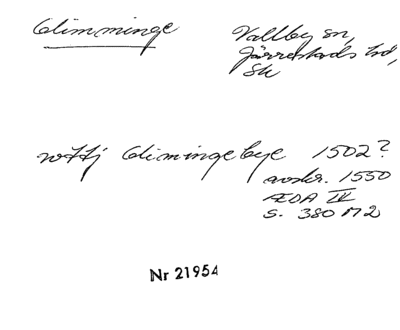 Glimminge Vallby sn,
Järrestads hd,
Sk
uttj Glimingebye 1502?
avskr. 1550
ÆDA IV
s. 380 n 2
Nr 21954